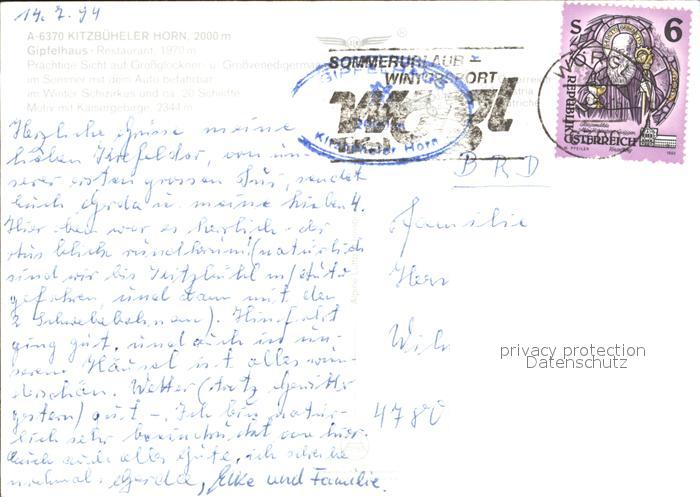 14.7.94
A-6370 KITZBÜHELER HORN, 2000 m
Gipfelhaus - Restaurant, 1970 m
Prächtige Sicht auf Großglockner- u. Großvenediger
im Sommer mit dem Auto befahrbar
im Winter Schizirkus und ca. 20 Schilifte
Motiv mit Kaisergebirge, 2344 m
SOMMERURLAUB -
WINTERSPORT
Wörgl
Tirol
GIPFELHAUS
Kitzbüheler Horn
6
REPUBLIK
ÖSTERREICH
BRD
Herzliche Grüsse meine
lieben, von un-
serer ersten grossen Tur, sendet
Euch Gerda u. meine lieben 4.
Hier oben war es herlich - der
Ausblick rundherum! (natürlich
sind wir bis Kitzbühl m/Auto
gefahren, und dann mit den
2 Schwebebahnen). Hinfahrt
ging gut, und auch in un-
serem Häusel ist alles wun-
derschön. Wetter (trotz Gewitter
gestern) gut -. Ich bin natür-
lich sehr beeindruckt von hier.
Euch auch alles Gute, ich schreibe
nochmal. Gerda, Elke und Familie.
Familie
Herr
Wilh
4780
privacy protection
Datenschutz